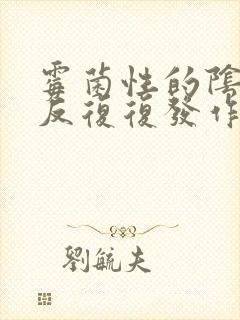 霉菌性的陰
反復復發作
劉毓夫